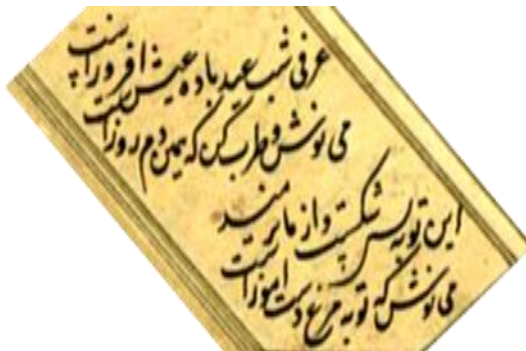 عرفی شب عید باده عیش افروز است
می نوش و طرب کن که همین دم روز است
این توبه بس شکست و از ما نرمید
می نوش که توبه مرغ دست آموز است